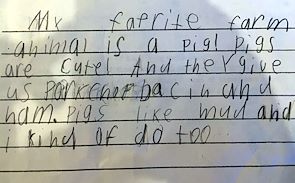 My faprite farm
animal is a pig! pigs
are cute! And they give
us porkchop bacin and
ham. pigs like mud and
i kind of do too